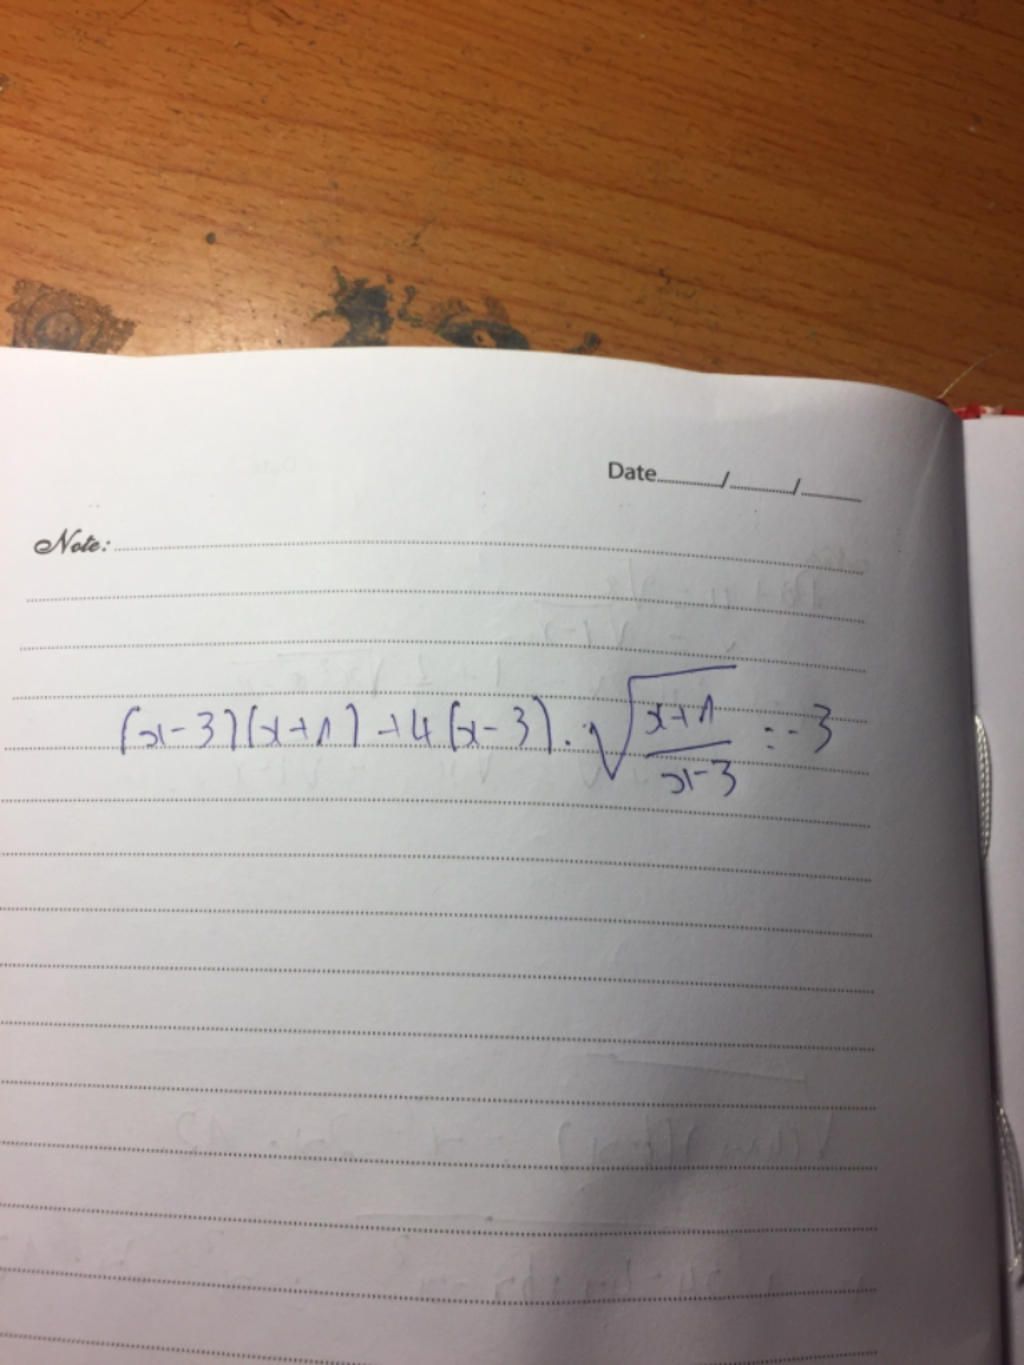 Date......../......../........
Note:
(x-3)(x+1)+4(x-3).√((x+1)/(x-3)) = -3